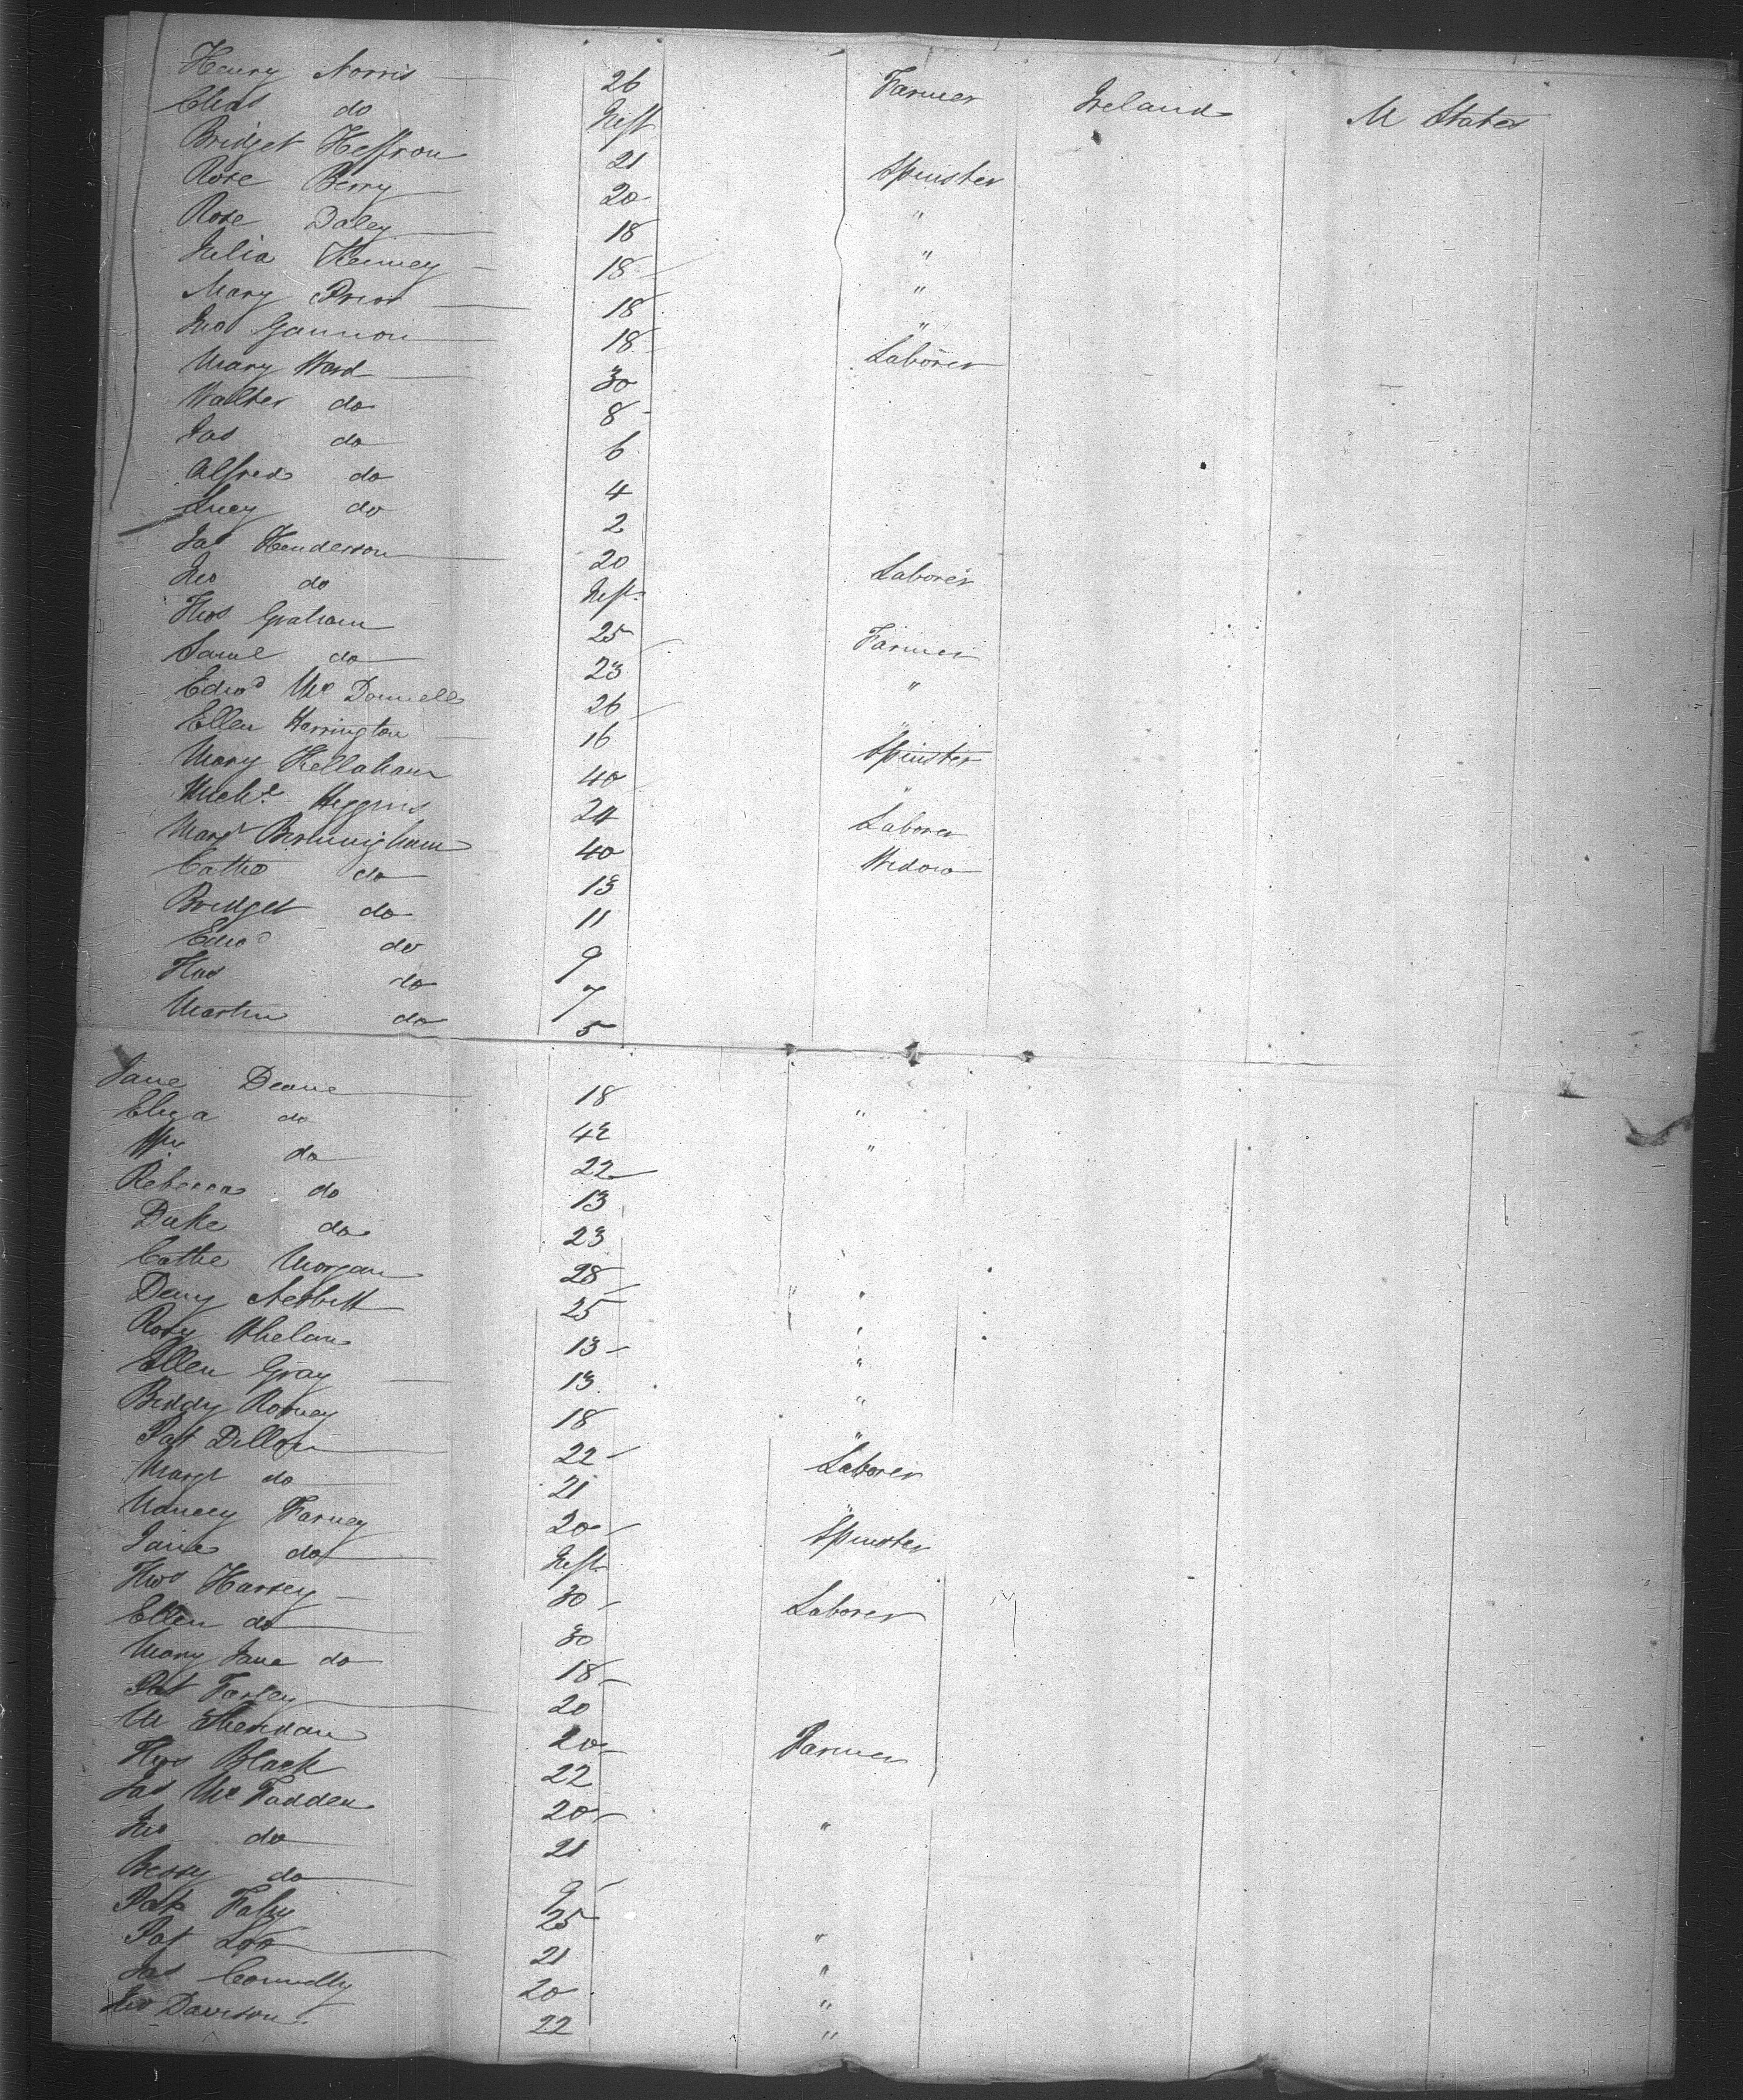 Henry Norris 26 Farmer Ireland U States
Chas do Inft
Bridget Heffron 21 Spinster
Rose Berry 20 "
Rose Daley 18 "
Julia Kenney 18 "
Mary Prior 18 "
Jno Gannon 18 Laborer
Mary Ward 30
Walter do 8
Jas do 6
Alfred do 4
Lucy do 2
Jas Henderson 20 Laborer
Jno do Inft
Thos Graham 25 Farmer
Saml do 23 "
Edwd Mc Donnell 26 "
Ellen Harrington 16 Spinster
Mary Kellaham 40 "
Michl Higgins 24 Laborer
Margt Bermingham 40 Widow
Cathe do 13
Bridget do 11
Edwd do 9
Thos do 7
Martin do 5
Jane Deane 18 "
Eliza do 42 "
Wm do 22
Rebecca do 13
Duke do 23
Cathe Morgan 28 "
Nesbitt 25 "
Rosy Whelan 13 "
Ellen Gray 13 "
Biddy Rooney 18 "
Pat Dillon 22 Laborer
Margt do 21 "
Nancy Farney 20 Spinster
Jane do Inft
Thos Harvey 30 Laborer
Ellen do 30
Mary Jane do 18
Pat Farley 20
M Sheridan 20 Farmer
Thos Black 22
Jas Mc Fadden 20 "
Jno do 21
Bessy do 9
Patk Fahy 25 "
Pat 21 "
Jas Connelly 20 "
Jno Davison 22 "